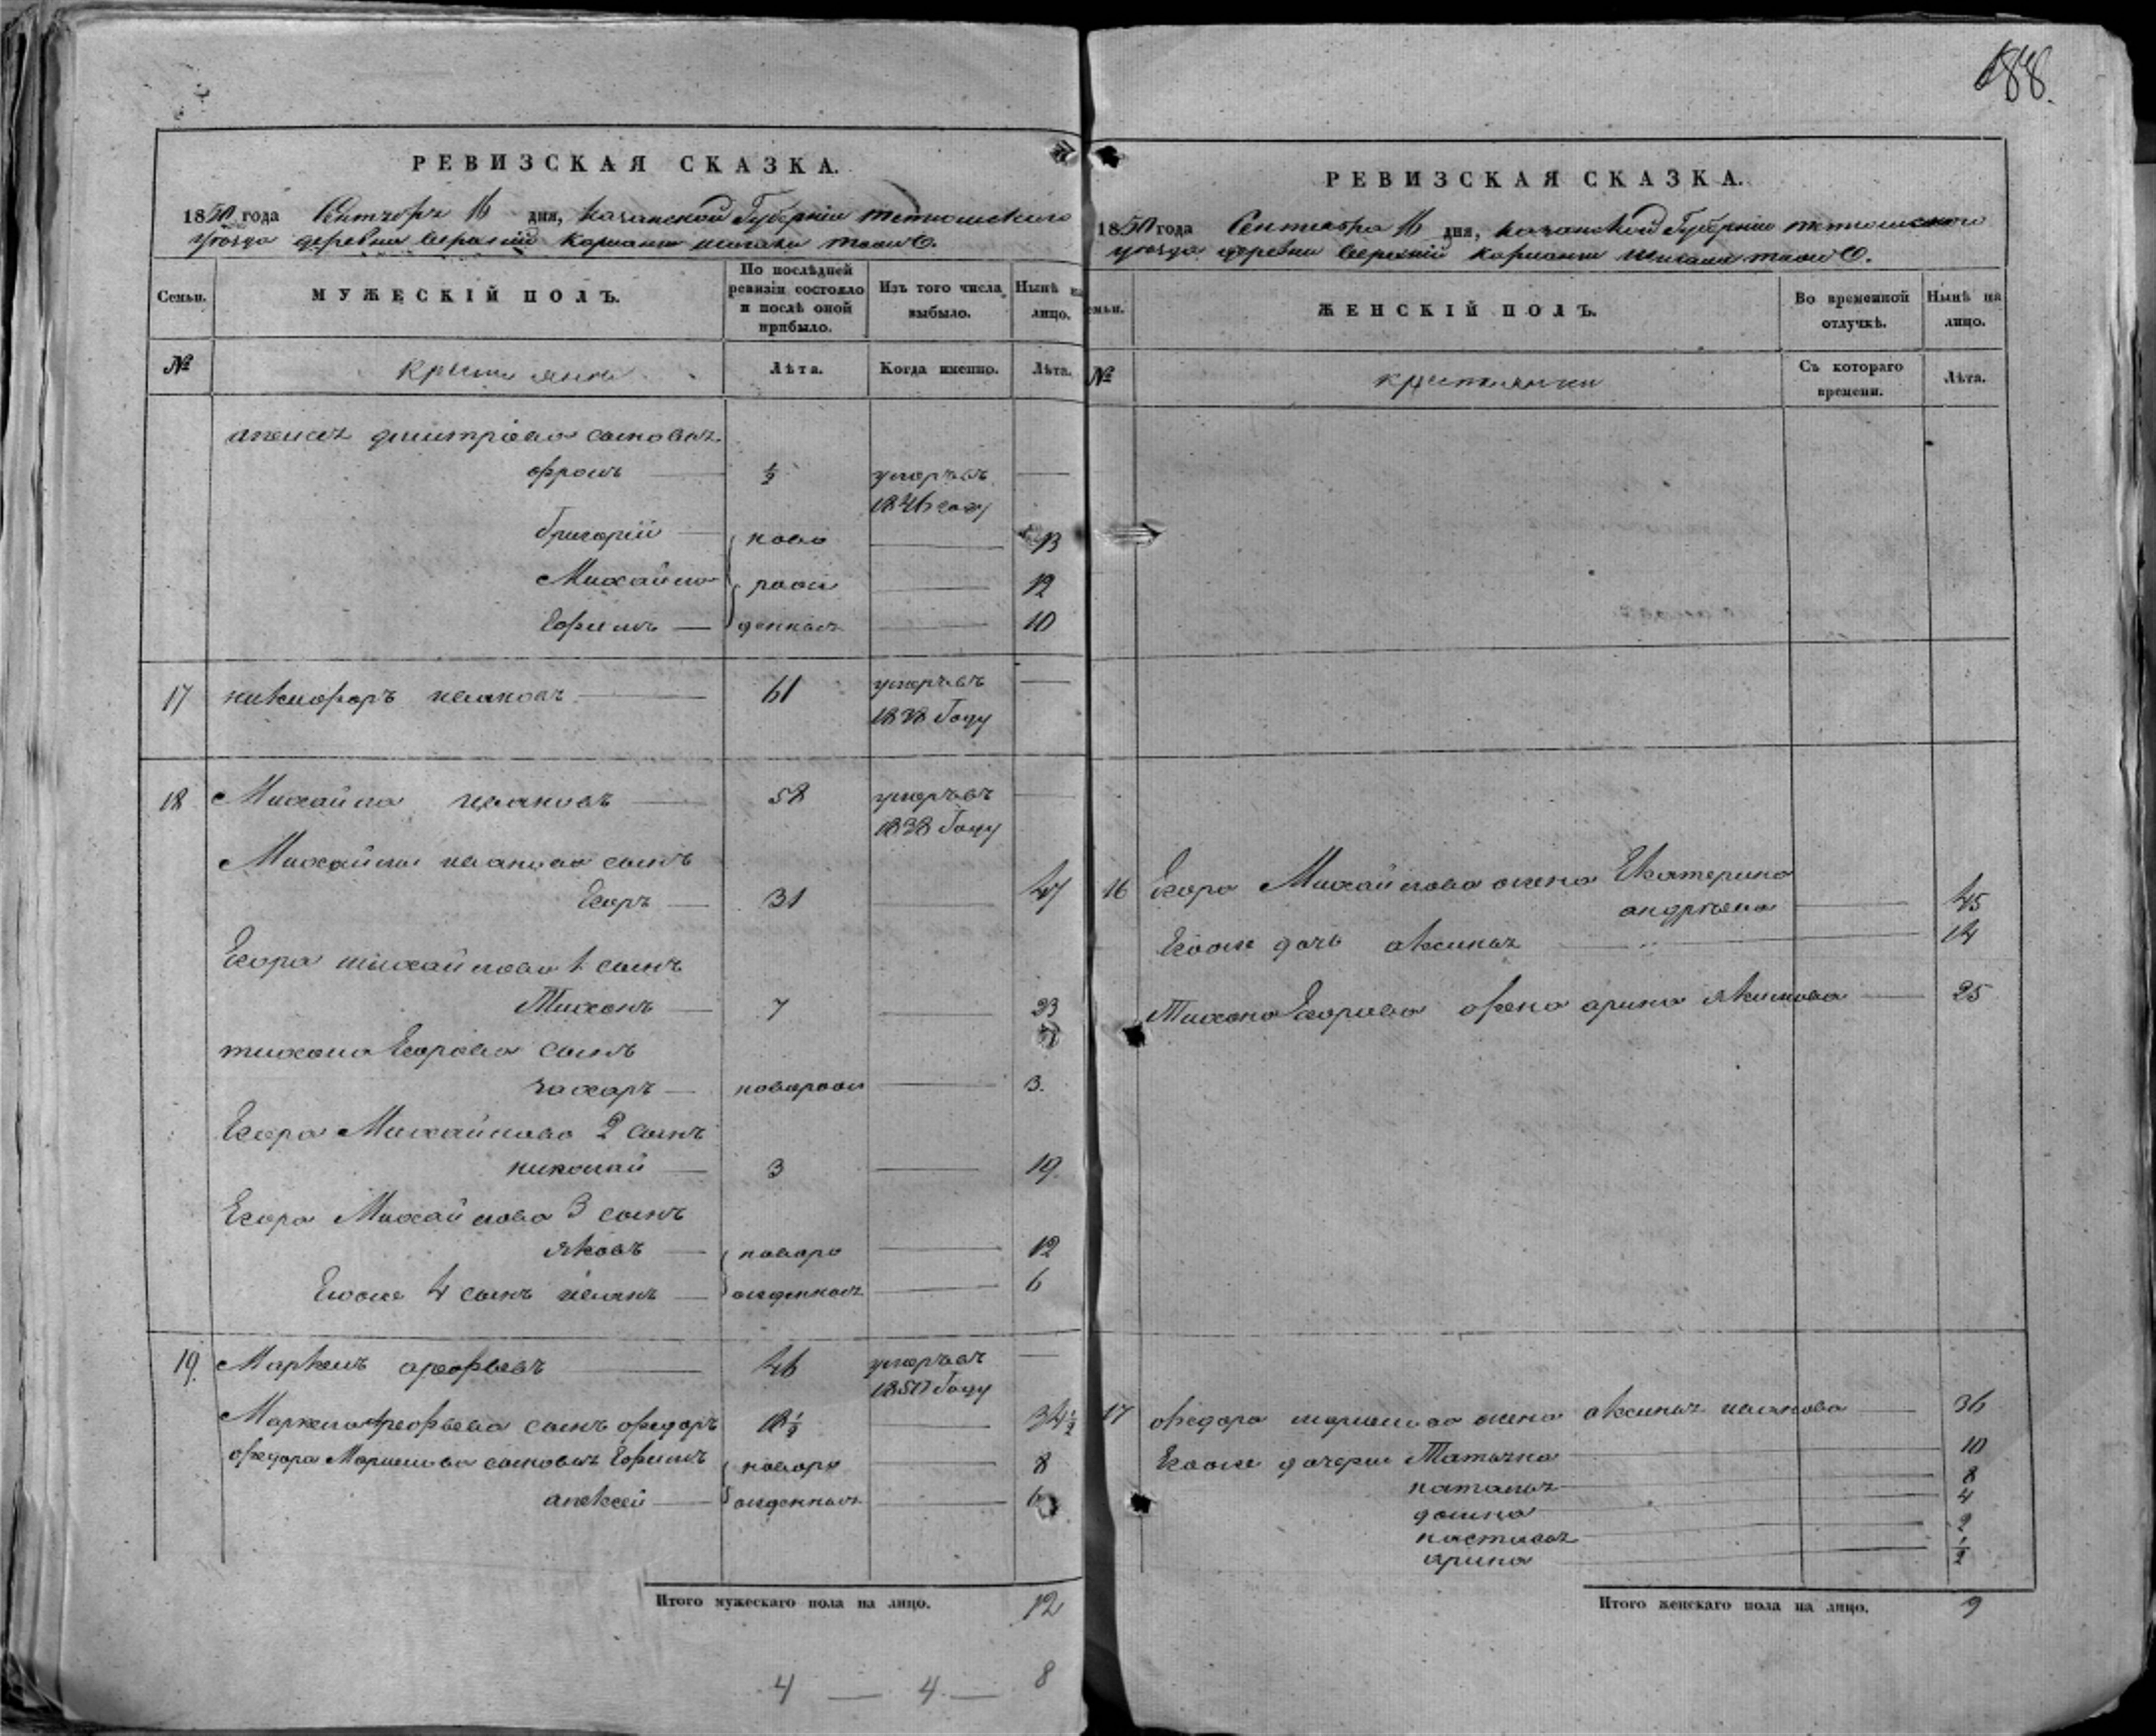 188.
РЕВИЗСКАЯ СКАЗКА.
1850 года Сентября 16 дня, Казанской Губернии тетюшскаго
уезда деревни верхний
Семьи.
МУЖЕСКІЙ ПОЛЪ.
По послѣдней ревизіи состояло и послѣ оной прибыло.
Изъ того числа выбыло.
Нынѣ на лицо.
№
Лѣта.
Когда именно.
Лѣта.
дмитріева сыновья
Фролъ — 1/2 умеръ въ —
1846 году
Григорій — ново — 13
Михайло рож — 12
Ефимъ — денныя — 10
17 никифоръ ивановъ — 61 умеръ въ —
1838 Году
18 Михайла ивановъ — 58 умеръ въ —
1838 Году
Михайлы иванова сынъ
Егоръ — 31 — 47
Егора михайлова 1 сынъ
Тихонъ — 7 — 23
тихона Егорова сынъ
захаръ — новорож — 3.
Егора Михайлова 2 сынъ
николай — 3 — 19.
Егора Михайлова 3 сынъ
яковъ — новоро — 12
Егоже 4 сынъ иванъ — жденныя — 6
19. Маркелъ арефьевъ — 46 умеръ въ —
1850 Году
Маркела Арефьева сынъ федоръ 18 1/2 — 34 1/2
федора Маркелова сыновья Ефимъ новоро — 8
алексей — жденныя — 6
Итого мужескаго пола на лицо. 12
4 — 4 — 8
РЕВИЗСКАЯ СКАЗКА.
1850 года Сентября 16 дня, казанской Губернии тетюшскаго
уезда деревни верхний
Семьи.
ЖЕНСКІЙ ПОЛЪ.
Во временной отлучкѣ.
Нынѣ на лицо.
№
крестьянки
Съ котораго времени.
Лѣта.
16 Егора Михайлова жена Екатерина
андреева — 45
Егоже дочь аксинья — 14
Тихона Егорова жена арина якимова — 25
17 федора маркелова жена аксинья иванова — 36
Егоже дочери Татьяна — 10
наталья — 8
домна — 4
настасья — 2
арина — 1/2
Итого женскаго пола на лицо. 9